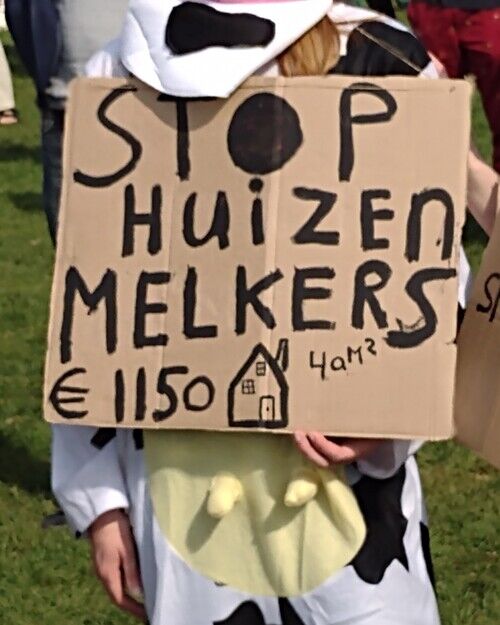 STOP
HUiZEN
MELKERS
€ 1150
40M²